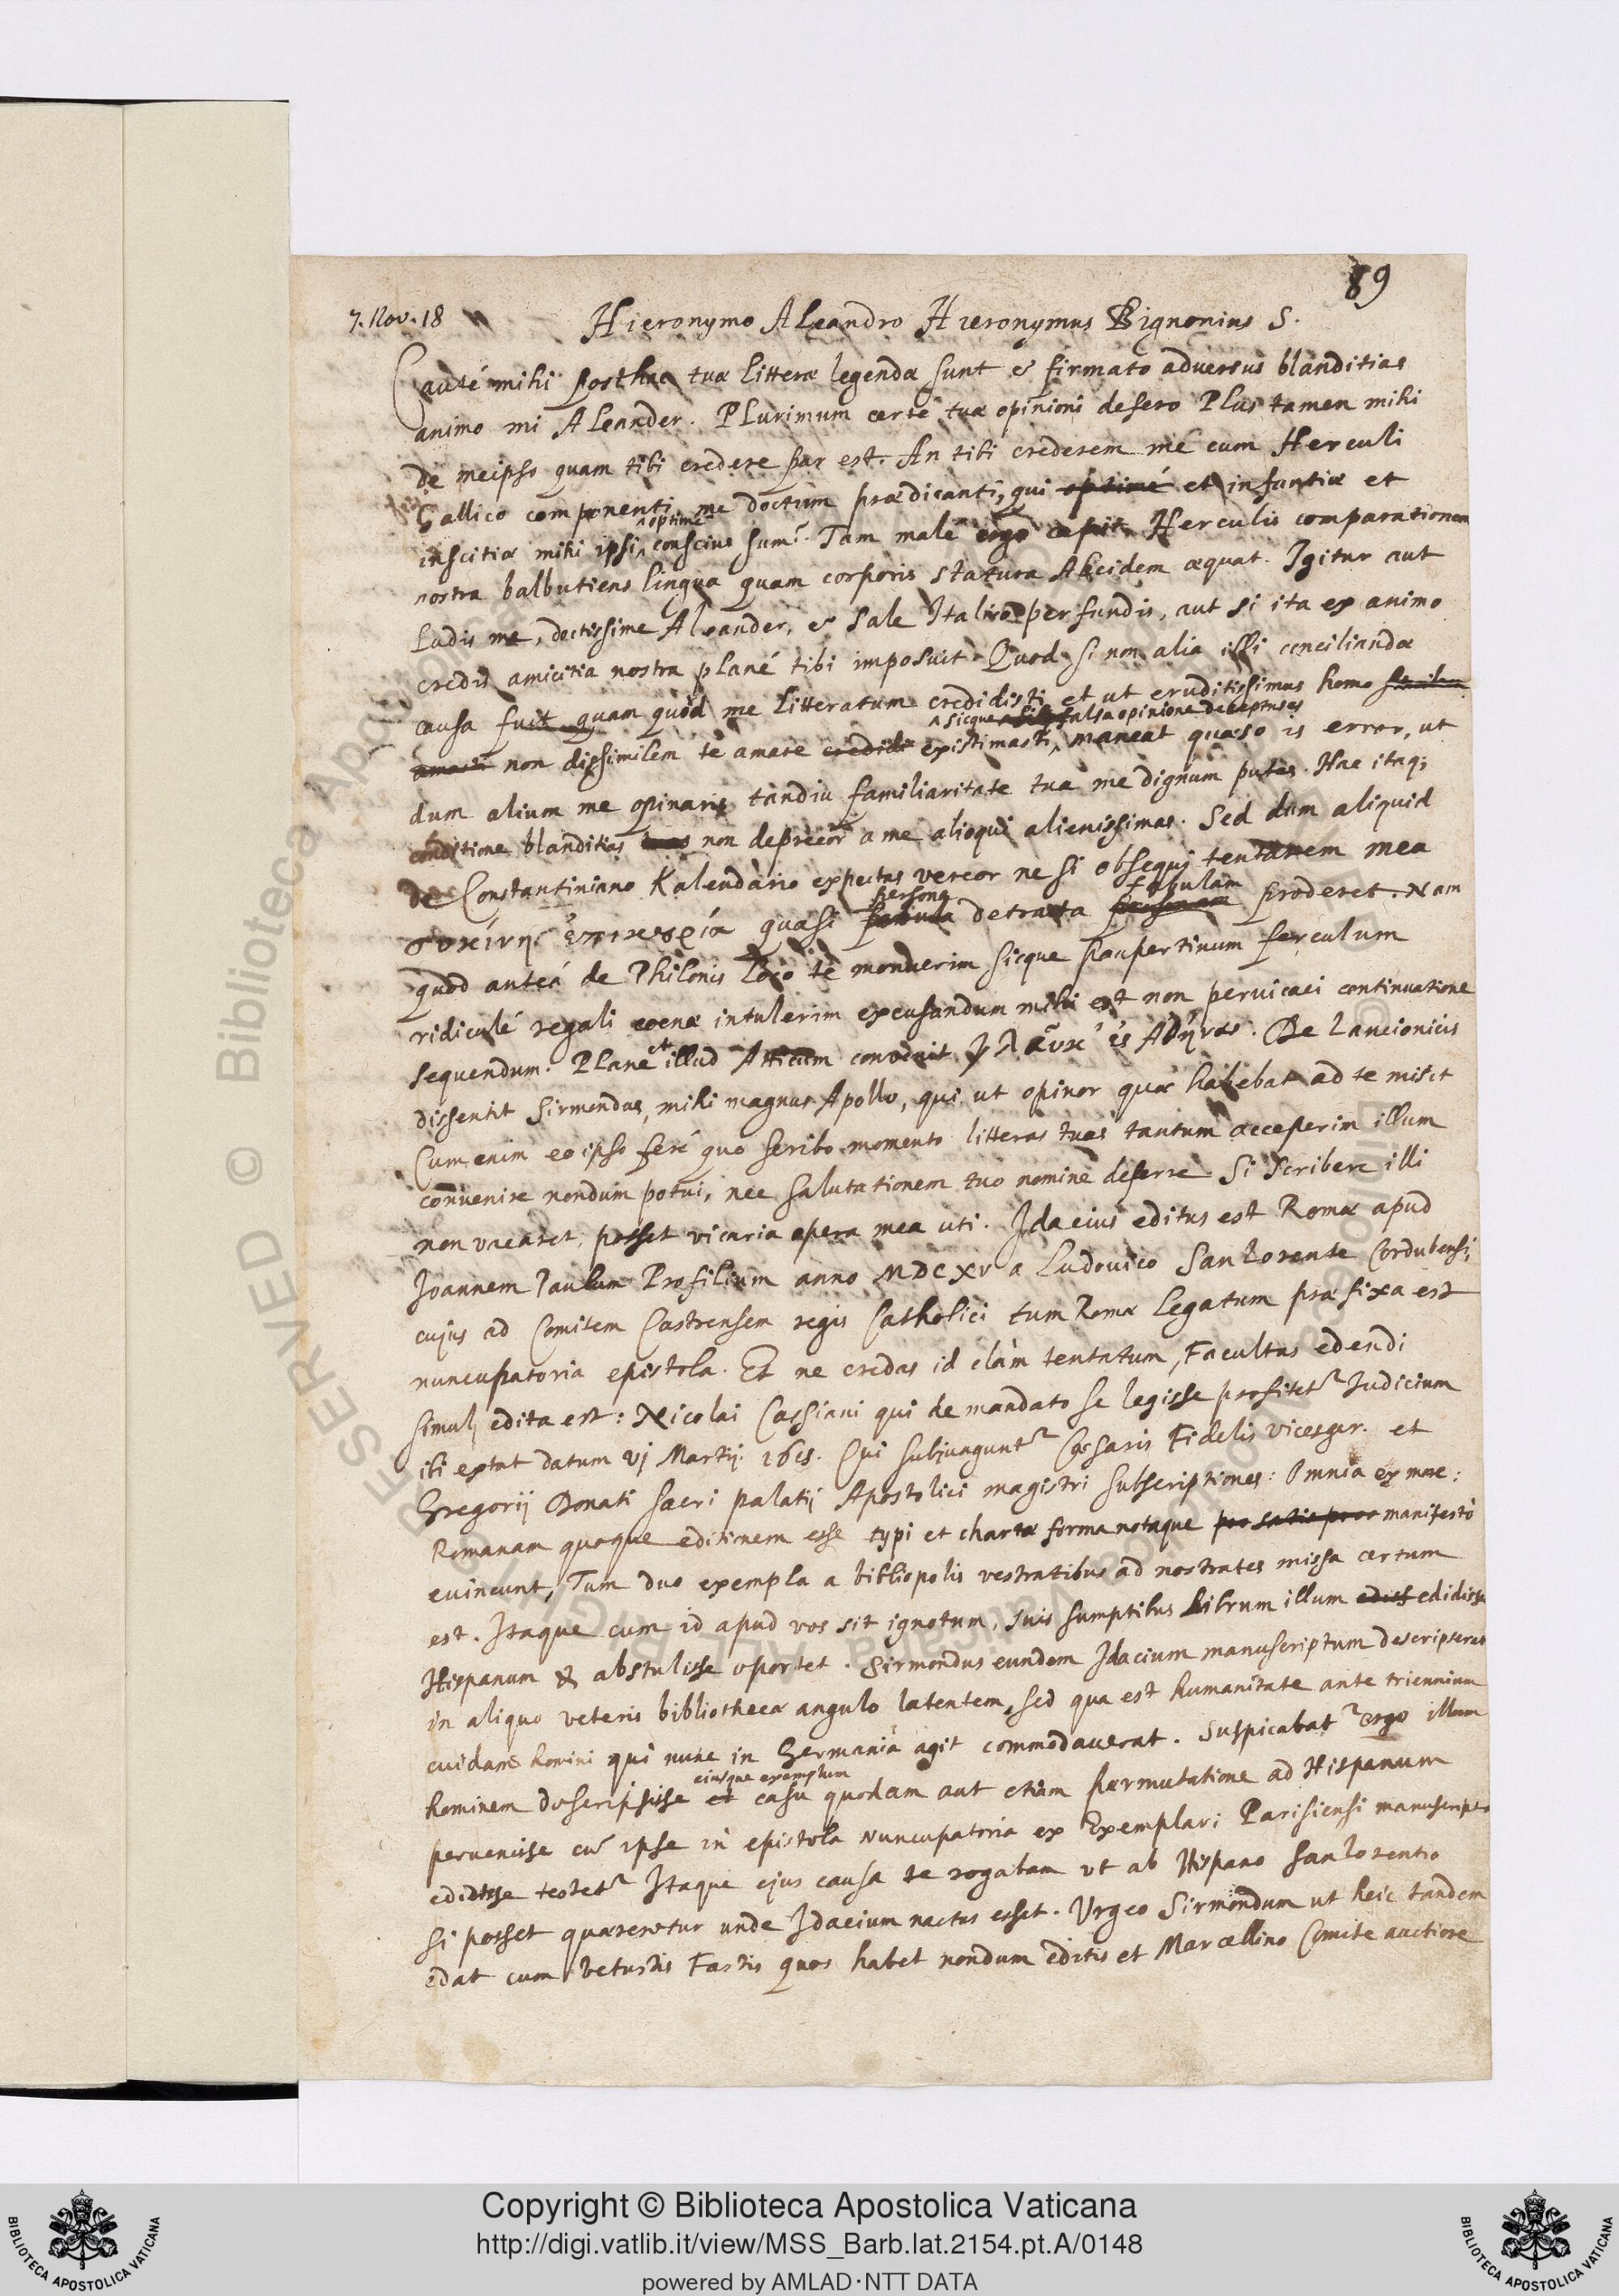 89
7. Nov. 18
Hieronymo Aleandro Hieronymus Bignonius S.
Cauté mihi posthac tuæ litteræ legendæ sunt & firmato adversus blanditias
animo mi Aleander. Plurimum certé tuæ opinioni defero Plus tamen mihi
de meipso quam tibi credere par est. An tibi crederem me cum Herculi
Gallico componenti, me doctum prædicanti, qui optimé et infantiæ et
inscitiæ mihi ipsi optimé conscius sum? Tam malé ergo capit Herculis comparationem
nostra balbutiens lingua quam corporis statura Alcidem æquat. Igitur aut
Ludis me, doctissime Aleander, & sale Italico perfundis, aut si ita ex animo
credis amicitia nostra plané tibi imposuit. Quod si non alia illi conciliandæ
causa fuit quam quòd me litteratum credidisti et ut eruditissimus homo
non dissimilem te amare credidi existimasti, sicque falsa opinione deceptus es maneat quæso is error, ut
dum alium me opinaris tandiu familiaritate tua me dignum putes. Hac itaq;
conditione blanditias tuas non deprecor a me alioqui alienissimas. Sed dum aliquid
de Constantiniano Kalendario expectas vereor ne si obsequj tentarem mea
συκίνη ἐπικουρία quasi fabula persona detracta personam fabulam proderet. Nam
quod anteá de Philonis loco te monuerim sicque paupertinum ferculum
ridiculé regali coenæ intulerim excusandum mihi est non pervicaci continuatione
sequendum. Plane et illud Atticum convenit γλαῦκ' ἐς Ἀθήνας. De Lancionicis
dissentit Sirmondus, mihi magnus Apollo, qui ut opinor quæ habebat ad te misit
Cum enim eo ipso feré quo scribo momento litteras tuas tantum acceperim illum
convenire nondum potui, nec salutationem tuo nomine deferre. Si scribere illi
non vacaret, posset vicaria opera mea uti. Idacius editus est Romæ apud
Joannem Paulum Profilium anno MDCXV a Ludovico San Lorente Cordubensi,
cujus ad Comitem Castrensem regis Catholici tum Romæ legatum præfixa est
nuncupatoria epistola. Et ne credas id clàm tentatum, Facultas edendi
simul edita est: Nicolai Cassiani qui de mandato se legisse profitetr Judicium
ibi extat datum vj Martij 1615. Cui subjunguntr Cæsaris Fidelis vicesger. et
Gregorij Donati sacri palatij Apostolici magistri subscriptiones: Omnia ex more:
Romanam quoque editionem esse typi et chartæ forma notaque manifestò
evincunt, Tum duo exempla a bibliopolis vestratibus ad nostrates missa certum
est. Itaque cum id apud vos sit ignotum, suis sumptibus librum illum edidisse
Hispanum & abstulisse oportet. Sirmondus eundem Idacium manuscriptum descripserat
in aliquo veteris bibliothecæ angulo latentem, sed qua est humanitate ante triennium
cuidam homini qui nunc in Germaniâ agit commodaverat. Suspicabatr ergo illum
hominem descripsisse et eiusque exemplum casu quodam aut etiam permutatione ad Hispanum
pervenisse cũ ipse in epistola nuncupatoria ex Exemplari Parisiensi manuscripto
edidisse testetr Itaque ejus causa te rogabam ut ab Hispano San Lorentio
si posset quæreretur unde Idacium nactus esset. Urgeo Sirmondum ut heic tandem
edat cum vetustis Fastis quos habet nondum editis et Marcellino Comite auctiore
Copyright © Biblioteca Apostolica Vaticana
http://digi.vatlib.it/view/MSS_Barb.lat.2154.pt.A/0148
powered by AMLAD·NTT DATA